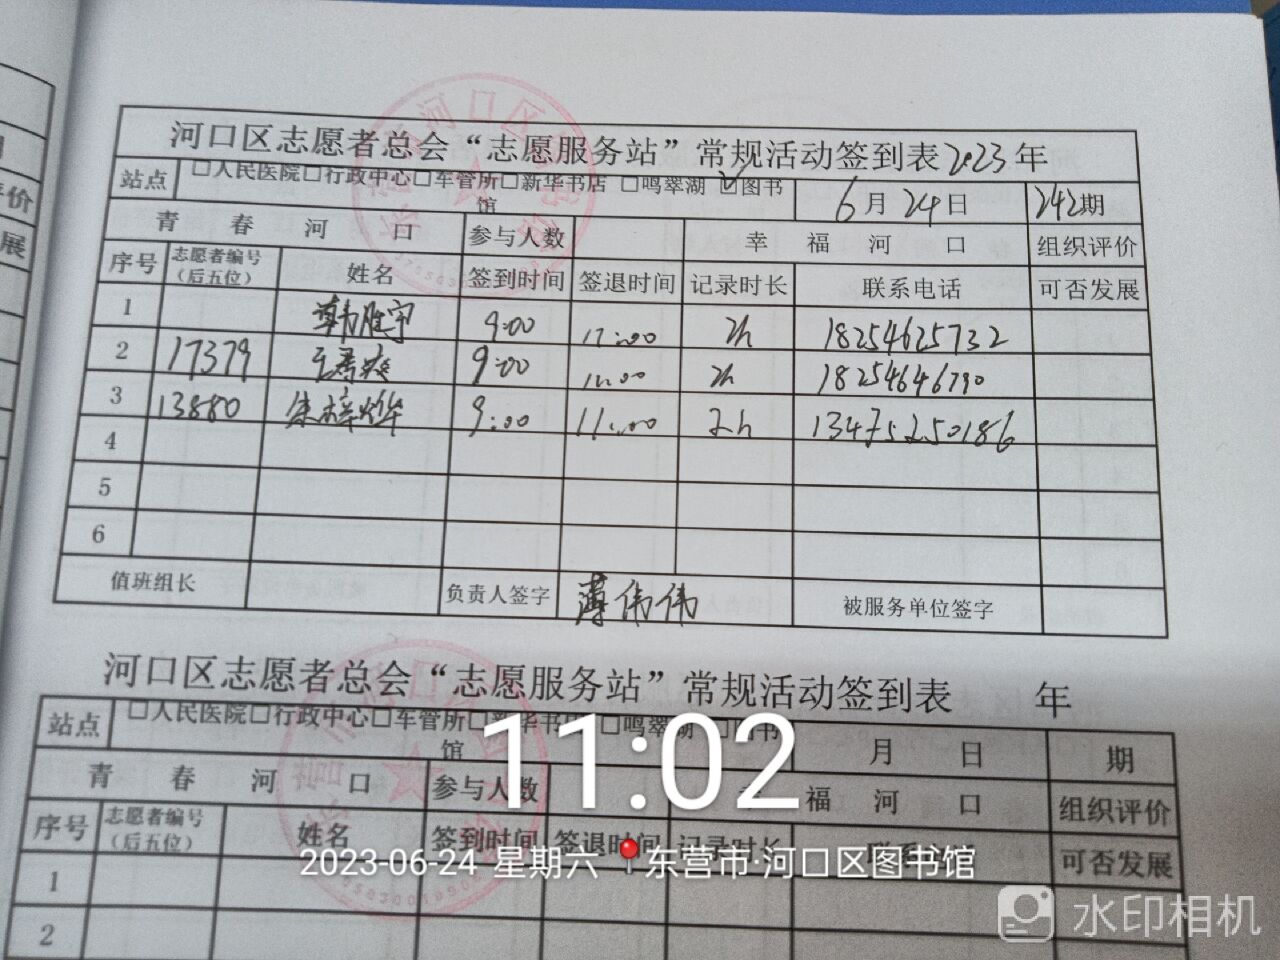 河口区志愿者总会“志愿服务站”常规活动签到表2023年
站点 □人民医院□行政中心□车管所□新华书店 □鸣翠湖 ☑图书馆 6月24日 242期
青春河口 参与人数 幸福河口 组织评价
序号 志愿者编号（后五位） 姓名 签到时间 签退时间 记录时长 联系电话 可否发展
1 韩胜宇 9:00 11:00 2h 18254625732
2 17379 9:00 11:00 2h 18254646790
3 13880 朱梓烨 9:00 11:00 2h 13475250186
4
5
6
值班组长 负责人签字 薄伟伟 被服务单位签字
河口区志愿者总会“志愿服务站”常规活动签到表 年
站点 □人民医院□行政中心□车管所□新华书店 □鸣翠湖 □图书馆 月 日 期
青春河口 参与人数 幸福河口 组织评价
序号 志愿者编号（后五位） 姓名 签到时间 签退时间 记录时长 联系电话 可否发展
1
2
11:02
2023-06-24 星期六 东营市·河口区图书馆
水印相机